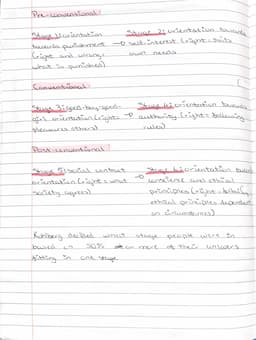 Pre-conventional
Stage 1: orientation → Stage 2: orientation towards
towards punishment self-interest (right = suits
(right and wrong = own needs
what is punished)
Conventional
Stage 3: good-boy-good- Stage 4: orientation towards
girl orientation (right = → authority (right = following
pleasures others) rules)
Post-conventional
Stage 5: social contract Stage 6: orientation towards
orientation (right = what → conscience and ethical
society agrees) principles (right =
ethical principles dependent
on circumstances)
Kohlberg decided what stage people were in
based on 50% or more of their answers
fitting in one stage